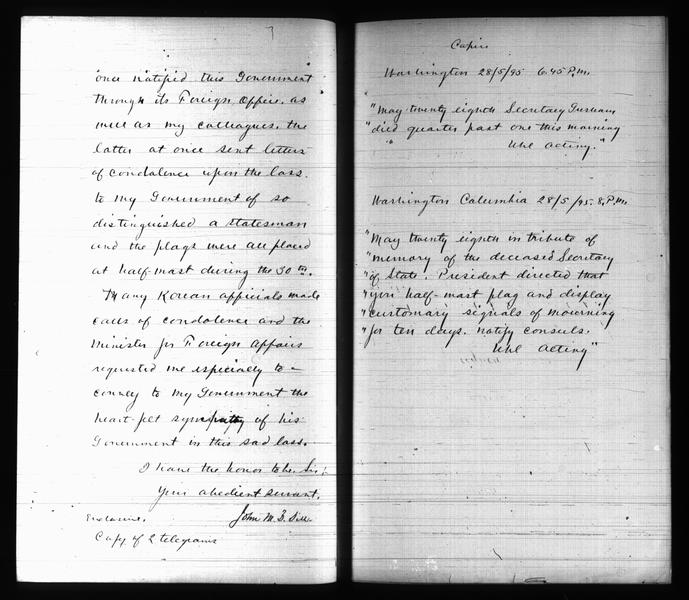 once notified this Government
through its Foreign Office, as
well as my colleagues. the
latter at once sent letters
of condolence upon the loss
to my Government of so
distinguished a statesman
and the flags were all placed
at half-mast during the 30th.
Many Korean officials made
calls of condolence and the
Minister for Foreign Affairs
requested me especially to
convey to my Government the
heart-felt sympathy of his
Government in this sad loss.
I have the honor to be, Sir,
Your obedient servant,
John M. B. Sill
Enclosure.
Copy of 2 telegrams
Copies
Washington 28/5/95 6.45 P.M.
"May twenty eighth Secretary Gresham
"died quarter past one this morning
" Uhl Acting."
Washington Columbia 28/5/95. 8. P.M.
"May twenty eighth in tribute of
"memory of the deceased Secretary
"of State. President directed that
"you half-mast flag and display
"customary signals of mourning
"for ten days. notify consuls.
Uhl Acting"